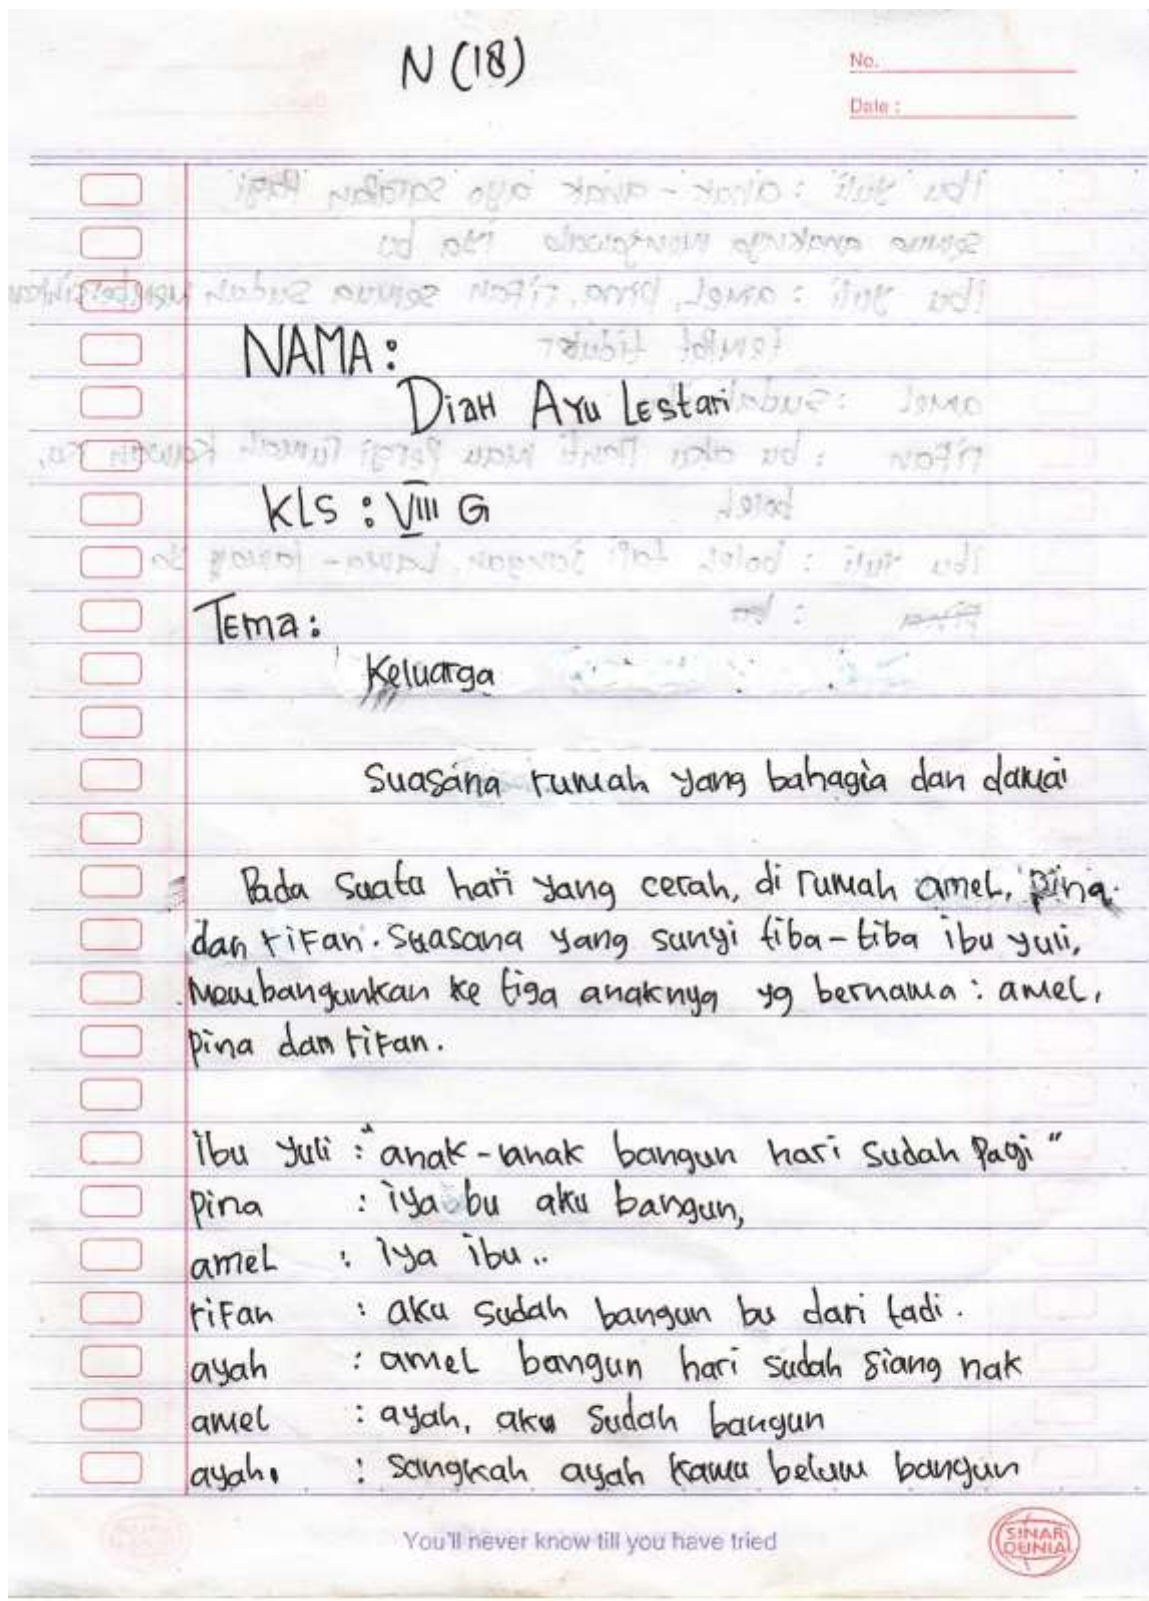 N (18)
No.
Date :
NAMA :
Diah Ayu Lestari
KLS : VIII G
Tema :
Keluarga
Suasana rumah yang bahagia dan damai
Pada suatu hari yang cerah, di rumah amel, pina
dan rifan. Suasana yang sunyi tiba-tiba ibu yuli,
Membangunkan ke tiga anaknya yg bernama : amel,
pina dan rifan.
ibu yuli : "anak-anak bangun hari sudah pagi"
pina : iya bu aku bangun,
amel : iya ibu..
rifan : aku sudah bangun bu dari tadi.
ayah : amel bangun hari sudah siang nak
amel : ayah, aku sudah bangun
ayah. : sangkah ayah kamu belum bangun
You'll never know till you have tried
SINAR DUNIA